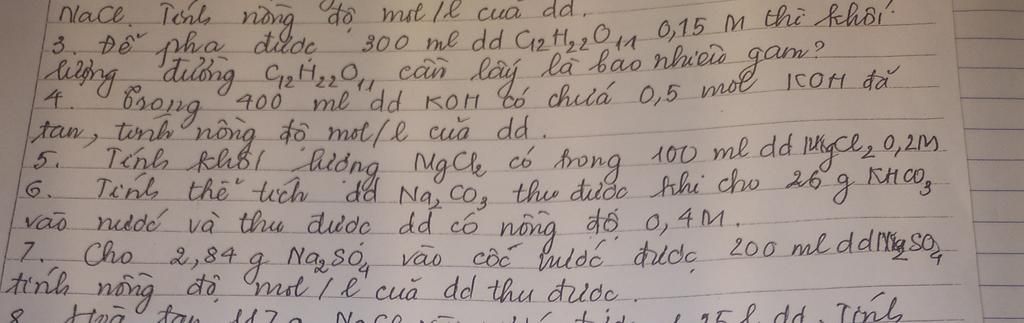 NaCl. Tính nồng độ mol/l của dd.
3. Để pha được 300 ml dd C12H22O11 0,15 M thì khối
lượng đường C12H22O11 cần lấy là bao nhiêu gam?
4. Trong 400 ml dd KOH có chứa 0,5 mol KOH đã
tan, tính nồng độ mol/l của dd.
5. Tính khối lượng MgCl2 có trong 100 ml dd MgCl2 0,2M
6. Tính thể tích dd Na2CO3 thu được khi cho 26 g KHCO3
vào nước và thu được dd có nồng độ 0,4M.
7. Cho 2,84 g Na2SO4 vào cốc nước được 200 ml dd Na2SO4
tính nồng độ mol/l của dd thu được.
8. Hoà tan 117g NaCl dd. Tính